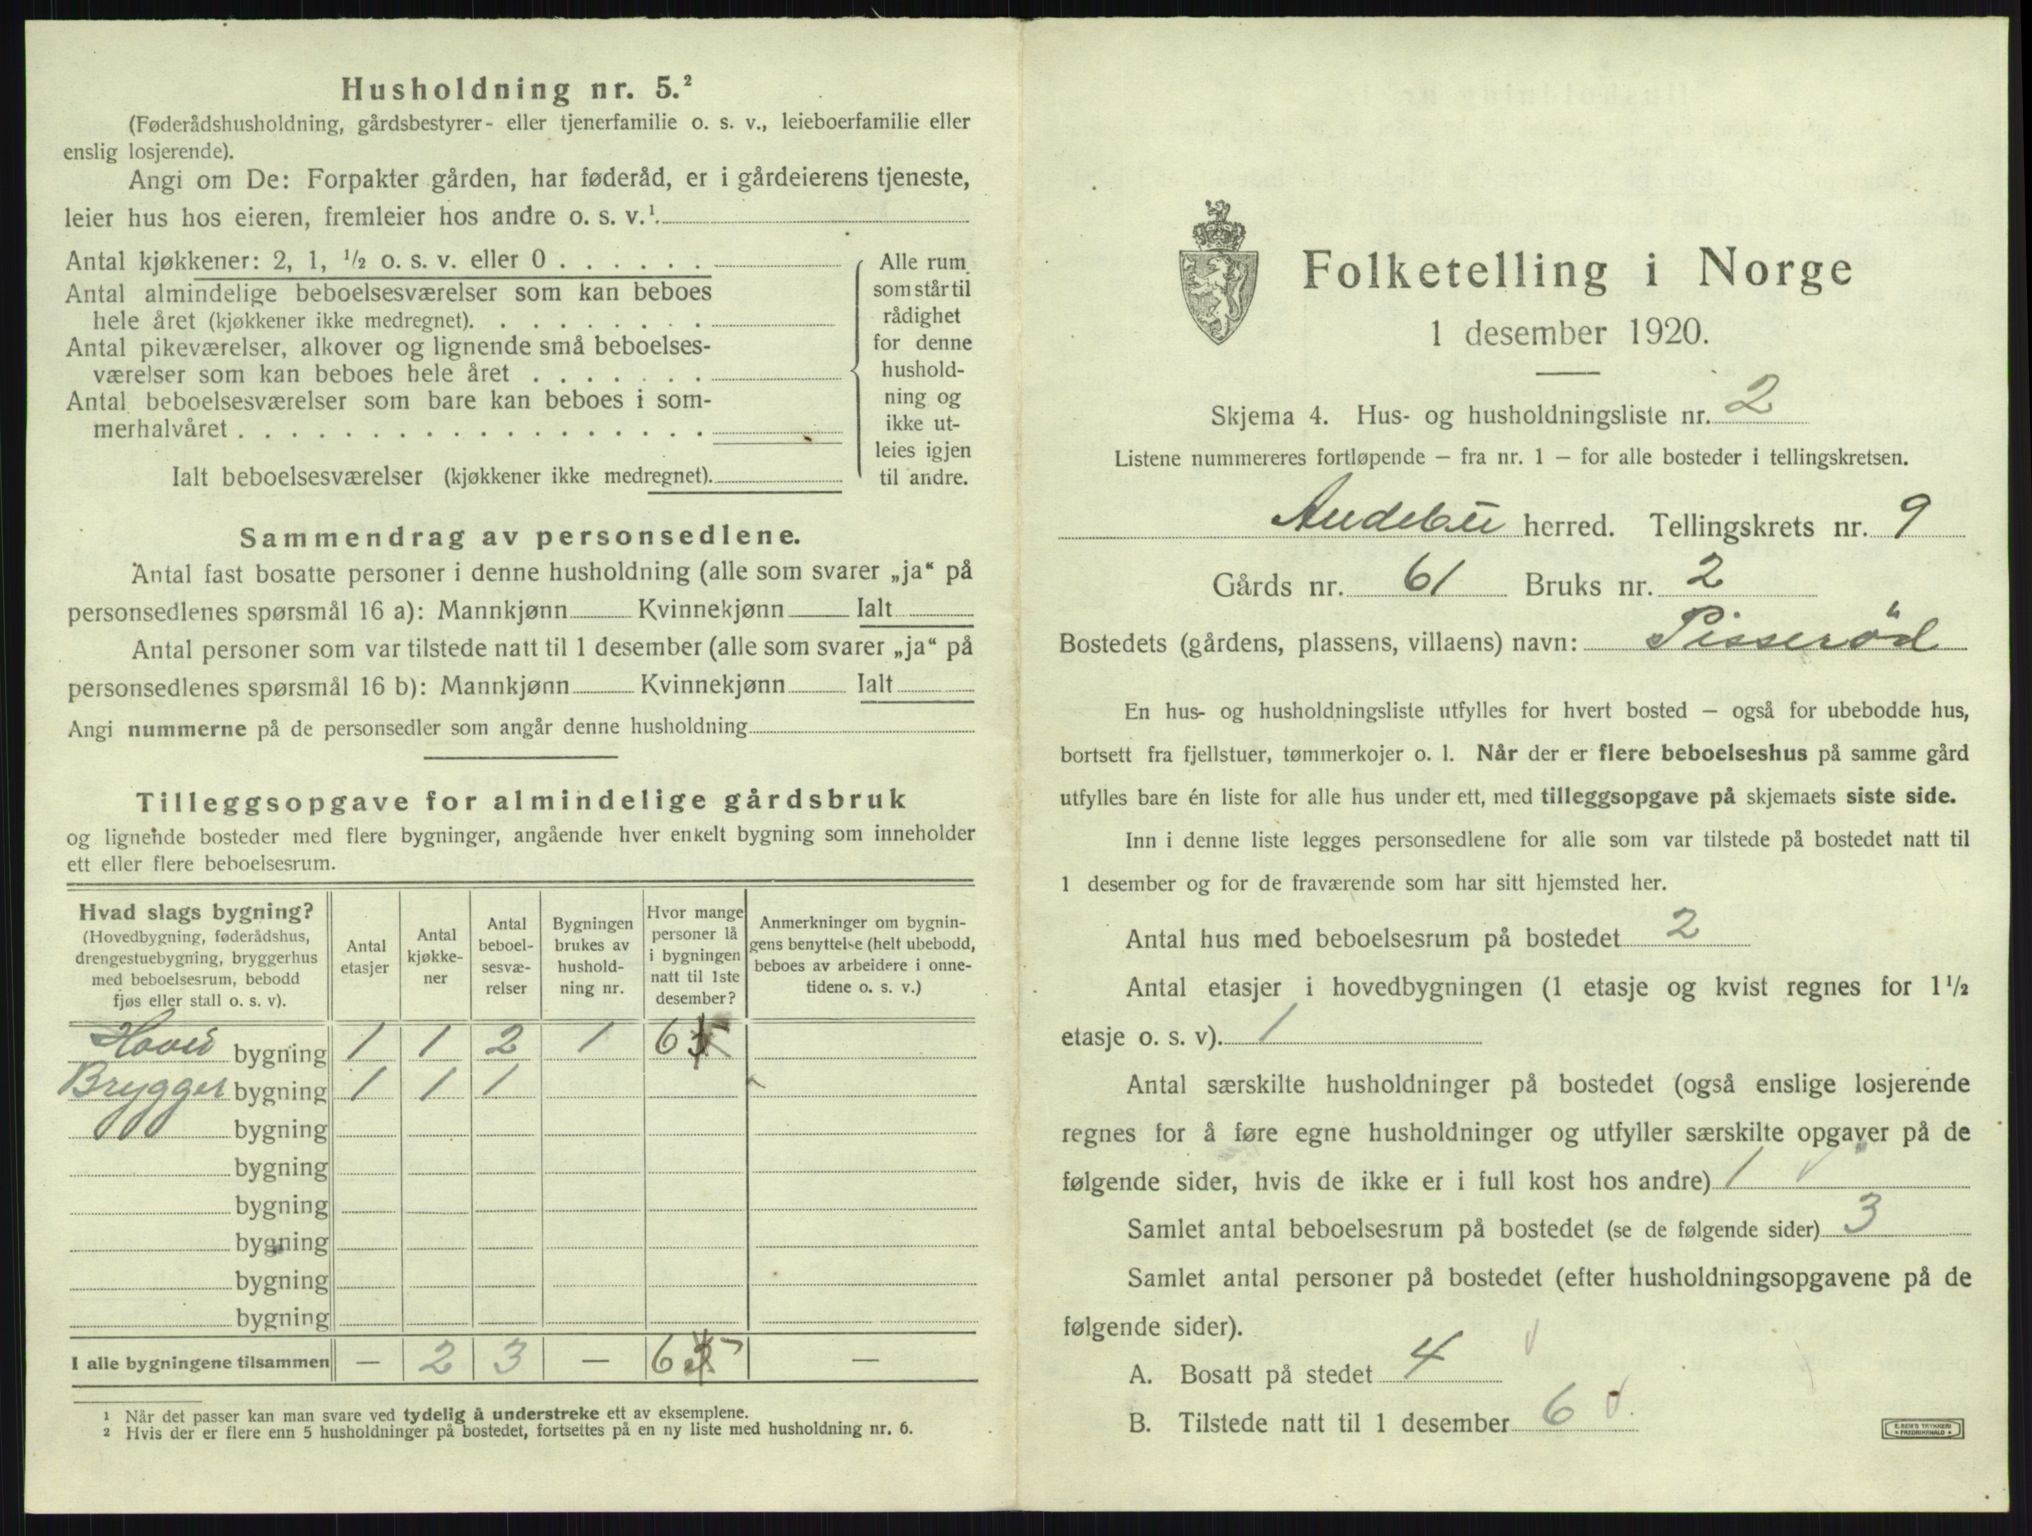 Husholdning nr. 5.²
(Føderådshusholdning, gårdsbestyrer- eller tjenerfamilie o. s. v., leieboerfamilie eller
enslig losjerende).
Angi om De: Forpakter gården, har føderåd, er i gårdeierens tjeneste,
leier hus hos eieren, fremleier hos andre o. s. v.¹
Antal kjøkkener: 2, 1, ½ o. s. v. eller 0 . . . . . .
Antal almindelige beboelsesværelser som kan beboes
hele året (kjøkkener ikke medregnet). . . . . . . . .
Antal pikeværelser, alkover og lignende små beboelses-
værelser som kan beboes hele året . . . . . . .
Antal beboelsesværelser som bare kan beboes i som-
merhalvåret . . . . . . . . . . . . . . . . . .
Ialt beboelsesværelser (kjøkkener ikke medregnet).
Alle rum
som står til
rådighet
for denne
hushold-
ning og
ikke ut-
leies igjen
til andre.
Sammendrag av personsedlene.
Antal fast bosatte personer i denne husholdning (alle som svarer „ja“ på
personsedlenes spørsmål 16 a): Mannkjønn Kvinnekjønn Ialt
Antal personer som var tilstede natt til 1 desember (alle som svarer „ja“ på
personsedlenes spørsmål 16 b): Mannkjønn Kvinnekjønn Ialt
Angi nummerne på de personsedler som angår denne husholdning
Tilleggsopgave for almindelige gårdsbruk
og lignende bosteder med flere bygninger, angående hver enkelt bygning som inneholder
ett eller flere beboelsesrum.
Hvad slags bygning?
(Hovedbygning, føderådshus,
drengestuebygning, bryggerhus
med beboelsesrum, bebodd
fjøs eller stall o. s. v).
Antal
etasjer
Antal
kjøkke-
ner
Antal
beboel-
sesvæ-
relser
Bygningen
brukes av
hushold-
ning nr.
Hvor mange
personer lå
i bygningen
natt til 1ste
desember?
Anmerkninger om bygnin-
gens benyttelse (helt ubebodd,
beboes av arbeidere i onne-
tidene o. s. v.)
Hoved bygning 1 1 2 1 6
Brygger bygning 1 1 1
bygning
bygning
bygning
bygning
bygning
bygning
I alle bygningene tilsammen — 2 3 — 6 —
¹ Når det passer kan man svare ved tydelig å understreke ett av eksemplene.
² Hvis der er flere enn 5 husholdninger på bostedet, fortsettes på en ny liste med husholdning nr. 6.
Folketelling i Norge
1 desember 1920.
Skjema 4. Hus- og husholdningsliste nr. 2
Listene nummereres fortløpende — fra nr. 1 — for alle bosteder i tellingskretsen.
Andebu herred. Tellingskrets nr. 9
Gårds nr. 61 Bruks nr. 2
Bostedets (gårdens, plassens, villaens) navn: Pisseröd
En hus- og husholdningsliste utfylles for hvert bosted — også for ubebodde hus,
bortsett fra fjellstuer, tømmerkojer o. l. Når der er flere beboelseshus på samme gård
utfylles bare én liste for alle hus under ett, med tilleggsopgave på skjemaets siste side.
Inn i denne liste legges personsedlene for alle som var tilstede på bostedet natt til
1 desember og for de fraværende som har sitt hjemsted her.
Antal hus med beboelsesrum på bostedet 2
Antal etasjer i hovedbygningen (1 etasje og kvist regnes for 1½
etasje o. s. v). 1
Antal særskilte husholdninger på bostedet (også enslige losjerende
regnes for å føre egne husholdninger og utfyller særskilte opgaver på de
følgende sider, hvis de ikke er i full kost hos andre) 1
Samlet antal beboelsesrum på bostedet (se de følgende sider) 3
Samlet antal personer på bostedet (efter husholdningsopgavene på de
følgende sider).
A. Bosatt på stedet 4
B. Tilstede natt til 1 desember 6